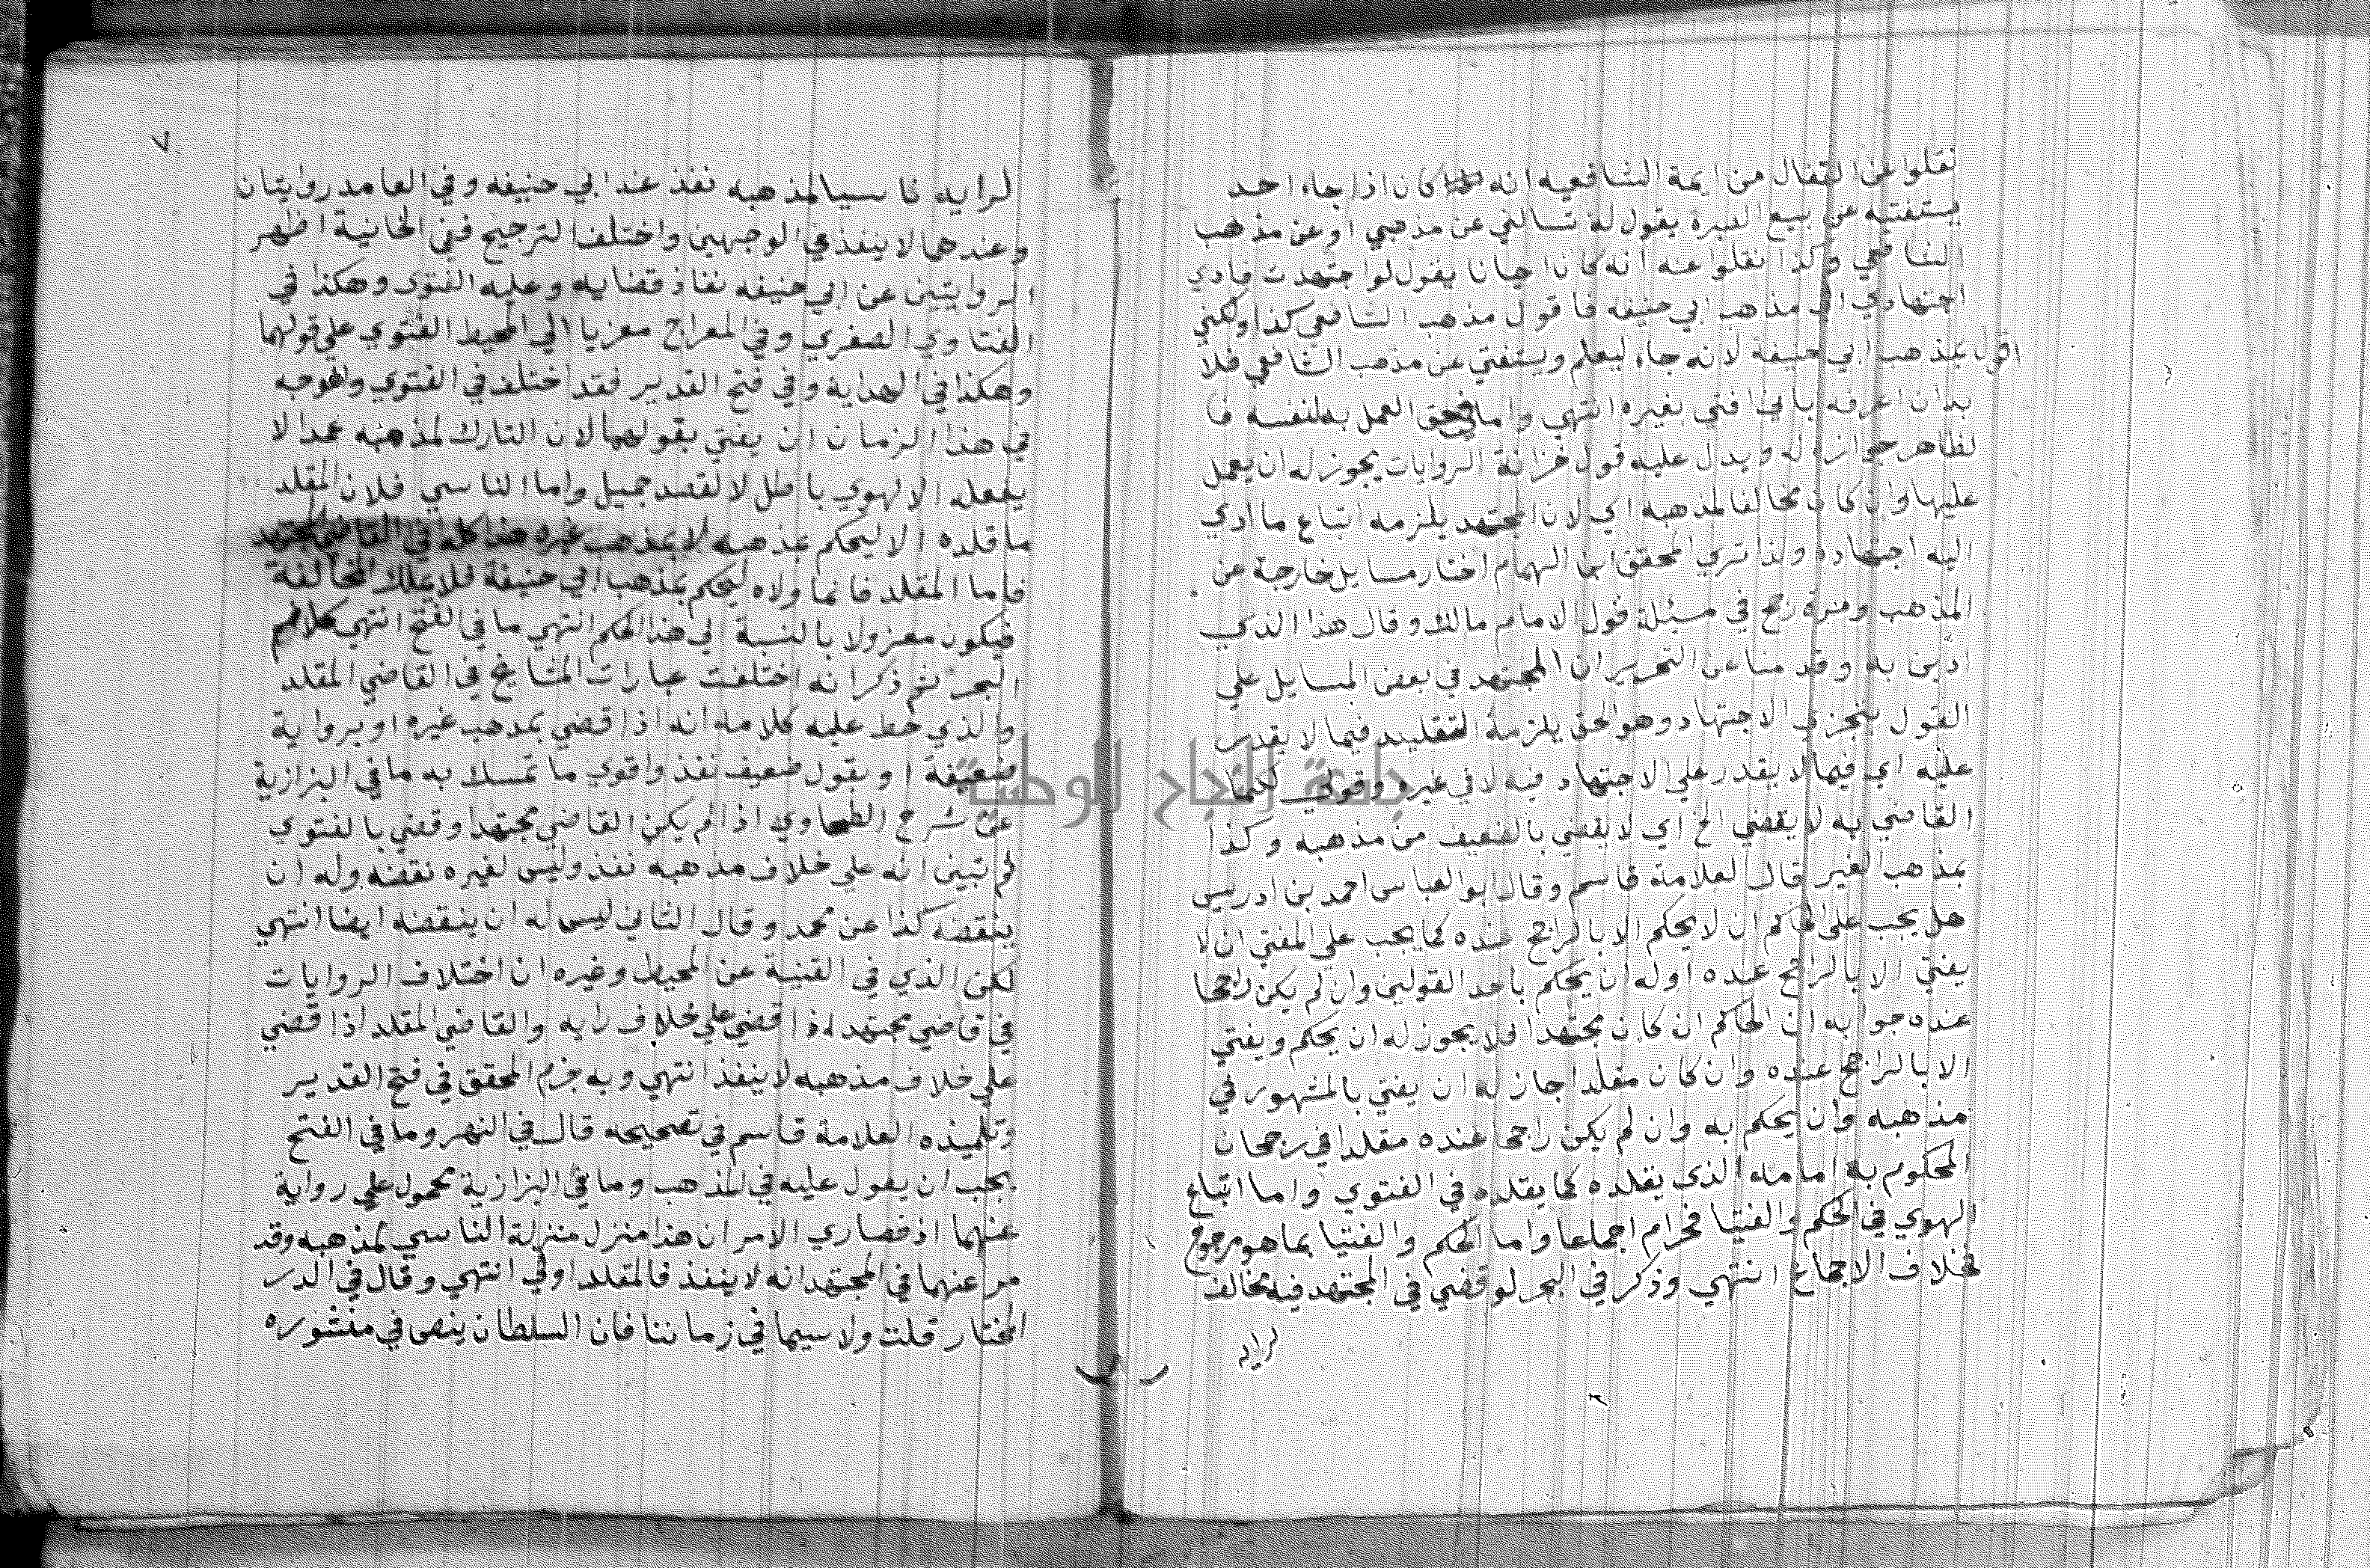 نقلوا عن القفال من ايمة الشافعيه انه كان اذا جاء احد
يستفتيه عن بيع الصبرة يقول له تسالني عن مذهبي او عن مذهب
الشافعي وكذا نقلوا عنه انه كان احيانا يقول لو اجتهدت فادي
اجتهادي الى مذهب ابي حنيفه فاقول مذهب الشافعي كذا ولكني
اقول بمذهب ابي حنيفة لانه جاء ليعلم ويستفتي عن مذهب الشافعي فلا
بد ان اعرفه باني افتي بغيره انتهي واما في حق العمل به لنفسه فا
لظاهر جوازه له ويدل عليه قول خزانة الروايات يجوز له ان يعمل
عليها وان كان مخالفا لمذهبه اي لان المجتهد يلزمه اتباع ما ادي
اليه اجتهاده ولذا تري المحقق ابن الهمام اختار مسايل خارجة عن
المذهب ومرة رجح في مسئلة قول الامام مالك وقال هذا الذي
ادين به وقد منا عن التحرير ان المجتهد في بعض المسايل علي
القول بتجزي الاجتهاد وهو الحق يلزمه التقليد فيما لا يقدر
عليه اي فيما لا يقدر علي الاجتهاد فيه لا في غيره وقولي كما
القاضي به لا يقضي الخ اي لا يقضي بالضعيف من مذهبه وكذا
بمذهب الغير قال العلامة قاسم وقال ابو العباس احمد بن ادريس
هل يجب علي الحاكم ان لا يحكم الا بالراجح عنده كما يجب علي المفتي ان لا
يفتي الا بالراجح عنده او له ان يحكم باحد القولين وان لم يكن راجحا
عنده جوابه ان الحاكم ان كان مجتهدا فلا يجوز له ان يحكم ويفتي
الا بالراجح عنده وان كان مقلدا جاز له ان يفتي بالمشهور في
مذهبه وان يحكم به وان لم يكن راجحا عنده مقلدا في رجحان
المحكوم به امامه الذي يقلده كما يقلده في الفتوي واما اتباع
الهوي في الحكم والفتيا فحرام اجماعا واما الحكم والفتيا بما هو مرجوح
فخلاف الاجماع انتهي وذكر في البحر لو قضي في المجتهد فيه مخالف
لرايه
٧
لرايه ناسيا لمذهبه نفذ عند ابي حنيفه وفي العامد روايتان
وعندهما لا ينفذ في الوجهين واختلف الترجيح ففي الخانية اظهر
الروايتين عن ابي حنيفه نفاذ قضايه وعليه الفتوي وهكذا في
الفتاوي الصغري وفي المعراج معزيا الي المحيط الفتوي علي قولهما
وهكذا في الهداية وفي فتح القدير فقد اختلف في الفتوي والوجه
في هذا الزمان ان يفتي بقولهما لان التارك لمذهبه عمدا لا
يفعله الا لهوي باطل لا لقصد جميل واما الناسي فلان المقلد
ما قلده الا ليحكم بمذهبه لا بمذهب غيره هذا كله في القاضي المجتهد
فاما المقلد فانما ولاه ليحكم بمذهب ابي حنيفة فلا يملك المخالفة
فيكون معزولا بالنسبة لي هذا الحكم انتهي ما في الفتح انتهي كلام
البحر ثم ذكر انه اختلفت عبارات المشايخ في القاضي المقلد
والذي حط عليه كلامه انه اذا قضي بمذهب غيره او برواية
ضعيفة او بقول ضعيف نفذ واقوي ما تمسك به ما في البزازية
عن شرح الطحاوي اذا لم يكن القاضي مجتهدا وقضي بالفتوي
ثم تبين انه علي خلاف مذهبه نفذ وليس لغيره نقضه وله ان
ينقضه كذا عن محمد وقال الثاني ليس له ان ينقضه ايضا انتهي
لكن الذي في القنية عن المحيط وغيره ان اختلاف الروايات
في قاضي مجتهد اذا قضي علي خلاف رايه والقاضي المقلد اذا قضي
علي خلاف مذهبه لا ينفذ انتهي وبه جزم المحقق في فتح القدير
وتلميذه العلامة قاسم في تصحيحه قال في النهر وما في الفتح
يجب ان يعول عليه في المذهب وما في البزازية محمول علي رواية
عنهما اذ قصاري الامر ان هذا منزل منزلة الناسي لمذهبه وقد
مر عنهما في المجتهد انه لا ينفذ فالمقلد اولي انتهي وقال في الدر
المختار قلت ولا سيما في زماننا فان السلطان ينص في منشوره
جامعة النجاح الوطنية